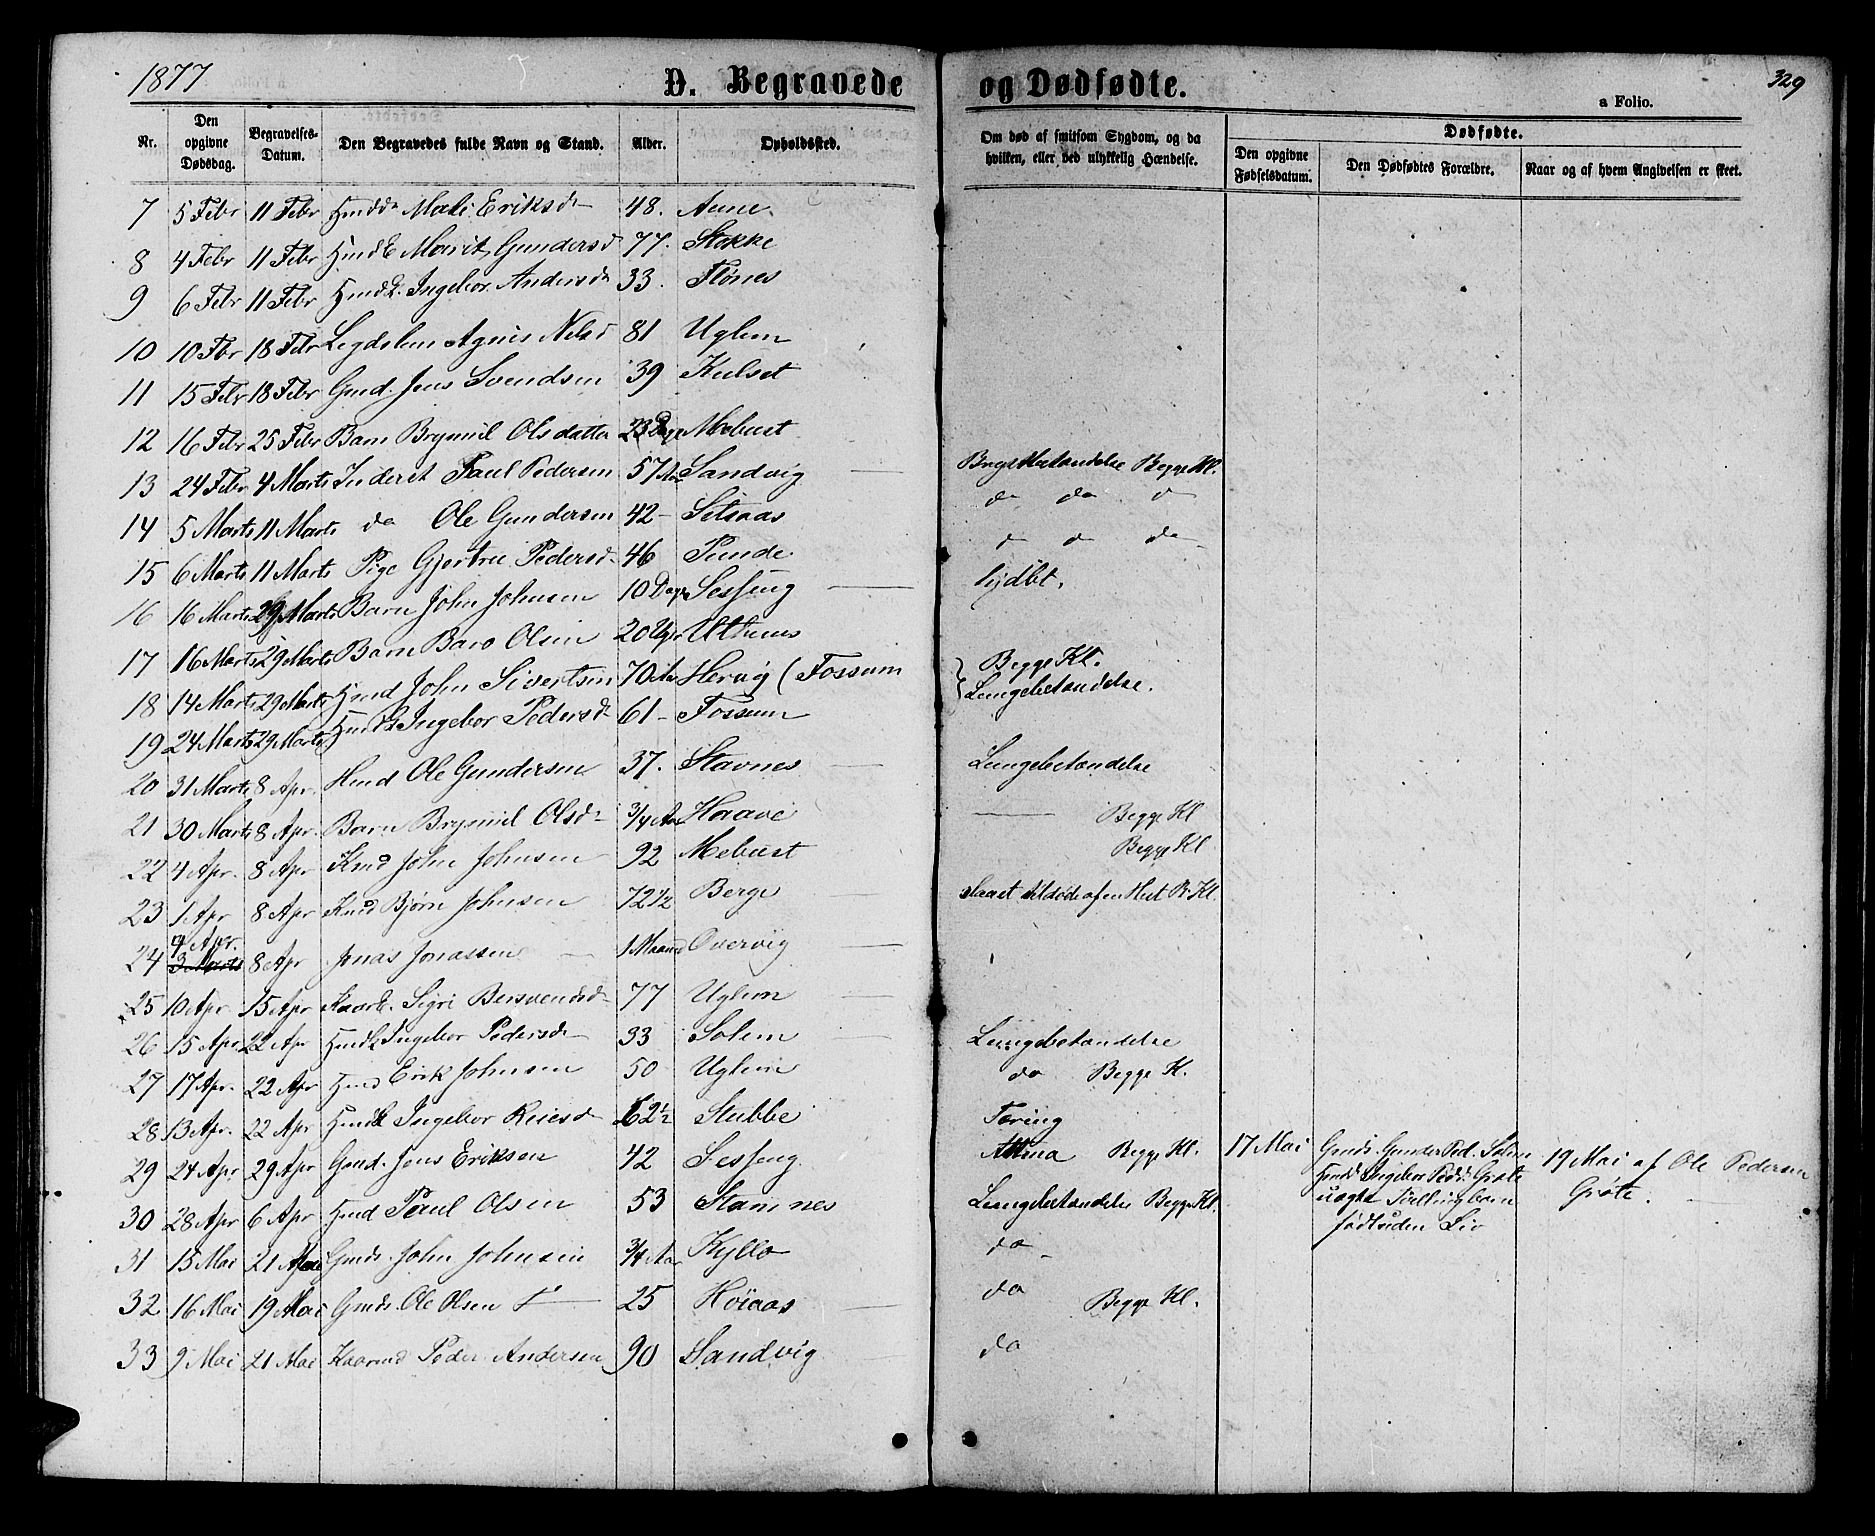 1877
D. Begravede og Dødfødte.
329
a Folio.
Nr. | Den opgivne Dødsdag. | Begravelses-Datum. | Den Begravedes fulde Navn og Stand. | Alder. | Opholdssted. | Om død af smitsom Sygdom, og da hvilken, eller ved ulykkelig Hændelse. | Dødfødte. | Den opgivne Fødselsdatum. | Den Dødfødtes Forældre. | Naar og af hvem Angivelsen er skeet.
7 5 Febr 11 Febr Mali Eriksd 48. Aune
8 4 Febr 11 Febr Marit Gundersd 77. Stokke
9 6 Febr 11 Febr Ingebor Andersd 33. Flønes
10 10 Fbr 18 Febr Legdslem Agnis Nelsd 81 Uglem
11 15 Febr 18 Febr Gmd. Jens Svendsen 39 Kulset
12 16 Febr 25 Febr Barn Brynnil Olsdatter 23 Dage Mebust
13 24 Febr 4 Marts Inderst Paul Pedersen 57 Aar Sandvig — Brystbetændelse Begge Kl.
14 5 Marts 11 Marts do Ole Gundersen 42 - Setsaas do do do
15 6 Marts 11 Marts Pige Gjertru Pedersd. 46 Sunde do do do
16 16 Marts 29 Marts Barn John Johnsen 10 Dage Sesseng —
17 16 Marts 29 Marts Barn Baro Olsen 20 Uger
18 14 Marts 29 Marts Hmd John Sivertsen 70 Aar Hervig (Fossum Begge Kl.
Lungebetændelse.
19 24 Marts 29 Marts Ingebor Pedersd 61 - Fossum
20 31 Marts 8 Apr. Hmd Ole Gundersen 37. Stavnes — Lungebetændelse
21 30 Marts 8 Apr. Barn Brynnil Olsd 3/4 Aar Haave — Begge Kl
22 4 Apr. 8 Apr John Johnsen 92 Mebust Begge Kl
23 1 Apr 8 Apr Bjørn Johnsen 72 1/2 Berge — slaaet tildøde af en Hest B. Kl.
4 Apr.
24 3 Marts 8 Apr Jonas Jonassen — 1 Maaned Overvig —
25 10 Apr 15 Apr Sigri Bersvendsd 77 Uglem —
26 15 Apr 22 Apr Ingebor Pedersd 33 Solem — Lungebetændelse
27 17 Apr. 22 Apr Hmd Erik Johnsen 50 Uglem do Begge Kl.
28 13 Apr. 22 Apr Ingebor 62 1/2 Stubbe Tæring
29 24 Apr 29 Apr Gmd. Jens Eriksen 42 Sesseng Astma Begge Kl. 17 Mai Gmds. Gunder Ped. Solem
Ingebor Pedd. Grøte
uægte Tvillingbarn
født uden Liv 19 Mai af Ole Pedersen
Grøte. —
30 28 Apr 6 Apr Hmd Paul Olsen 53 Stamnes Lungebetændelse Begge Kl.
31 15 Mai 21 Mai Gmds. John Johnsen 3/4 Aar Kyllo do
32 16 Mai 19 Mai Gmds. Ole Olsen — 25 Høiaas — do Begge Kl.
33 9 Mai 21 Mai Kaarmd Peder Andersen 90 Sandvig do